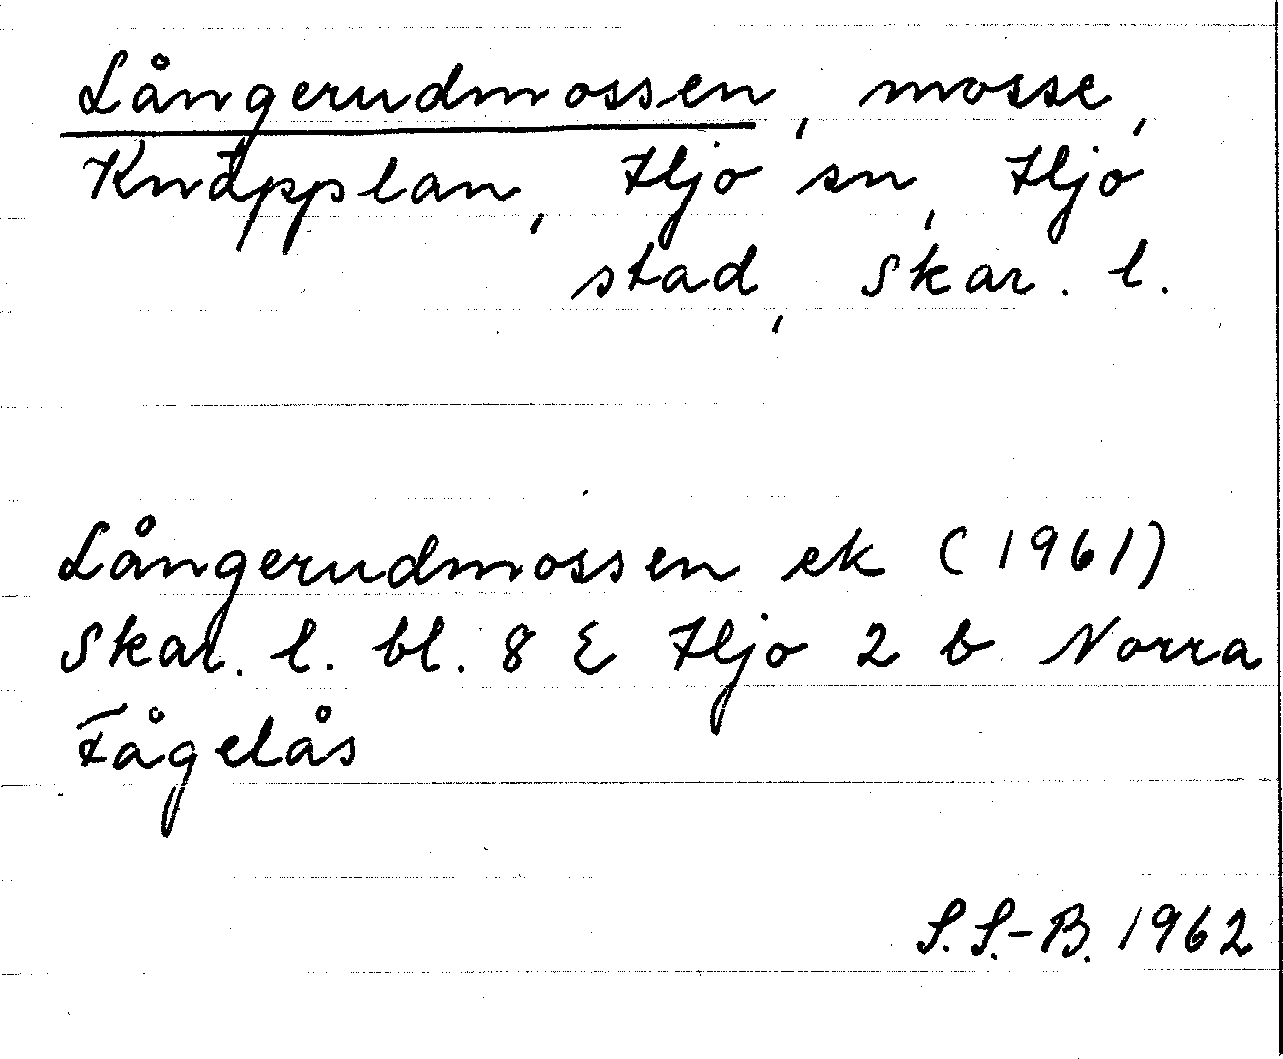 Långerudmossen, mosse,
Knäpplan, Hjo sn, Hjo
stad, Skar. l.
Långerudmossen ek (1961)
Skar. l. bl. 8 E Hjo 2 b Norra
Fågelås
S.S.-B. 1962